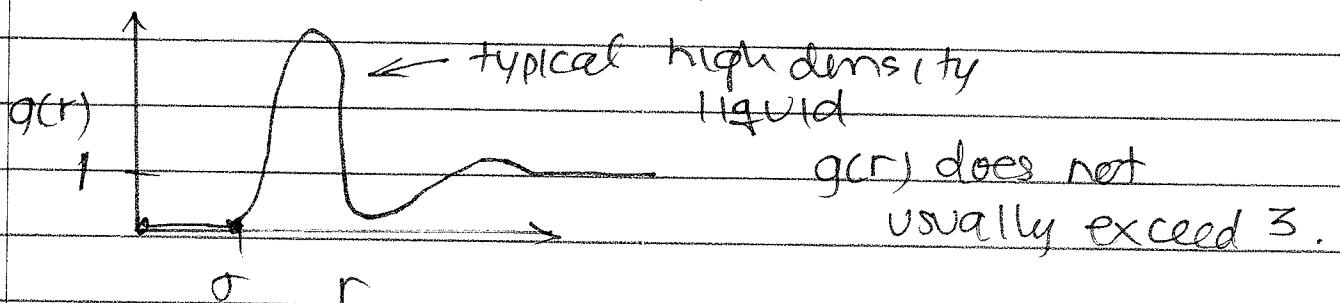 typical high density
liquid
g(r)
1
g(r) does not
usually exceed 3.
σ r